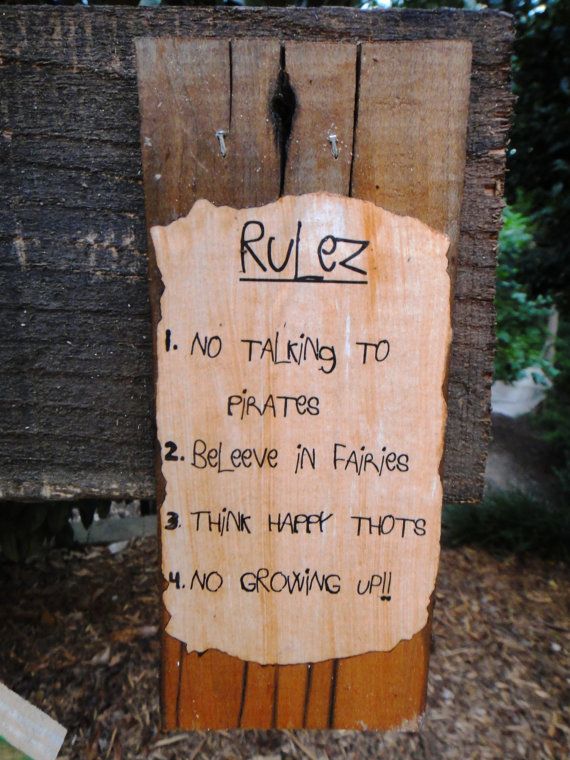 RuLez
1. NO TALKiNg TO
PiRATES
2. BeLeeve iN FAiRies
3. THiNK HAPPY THOTS
4. NO GROWiNG UP!!